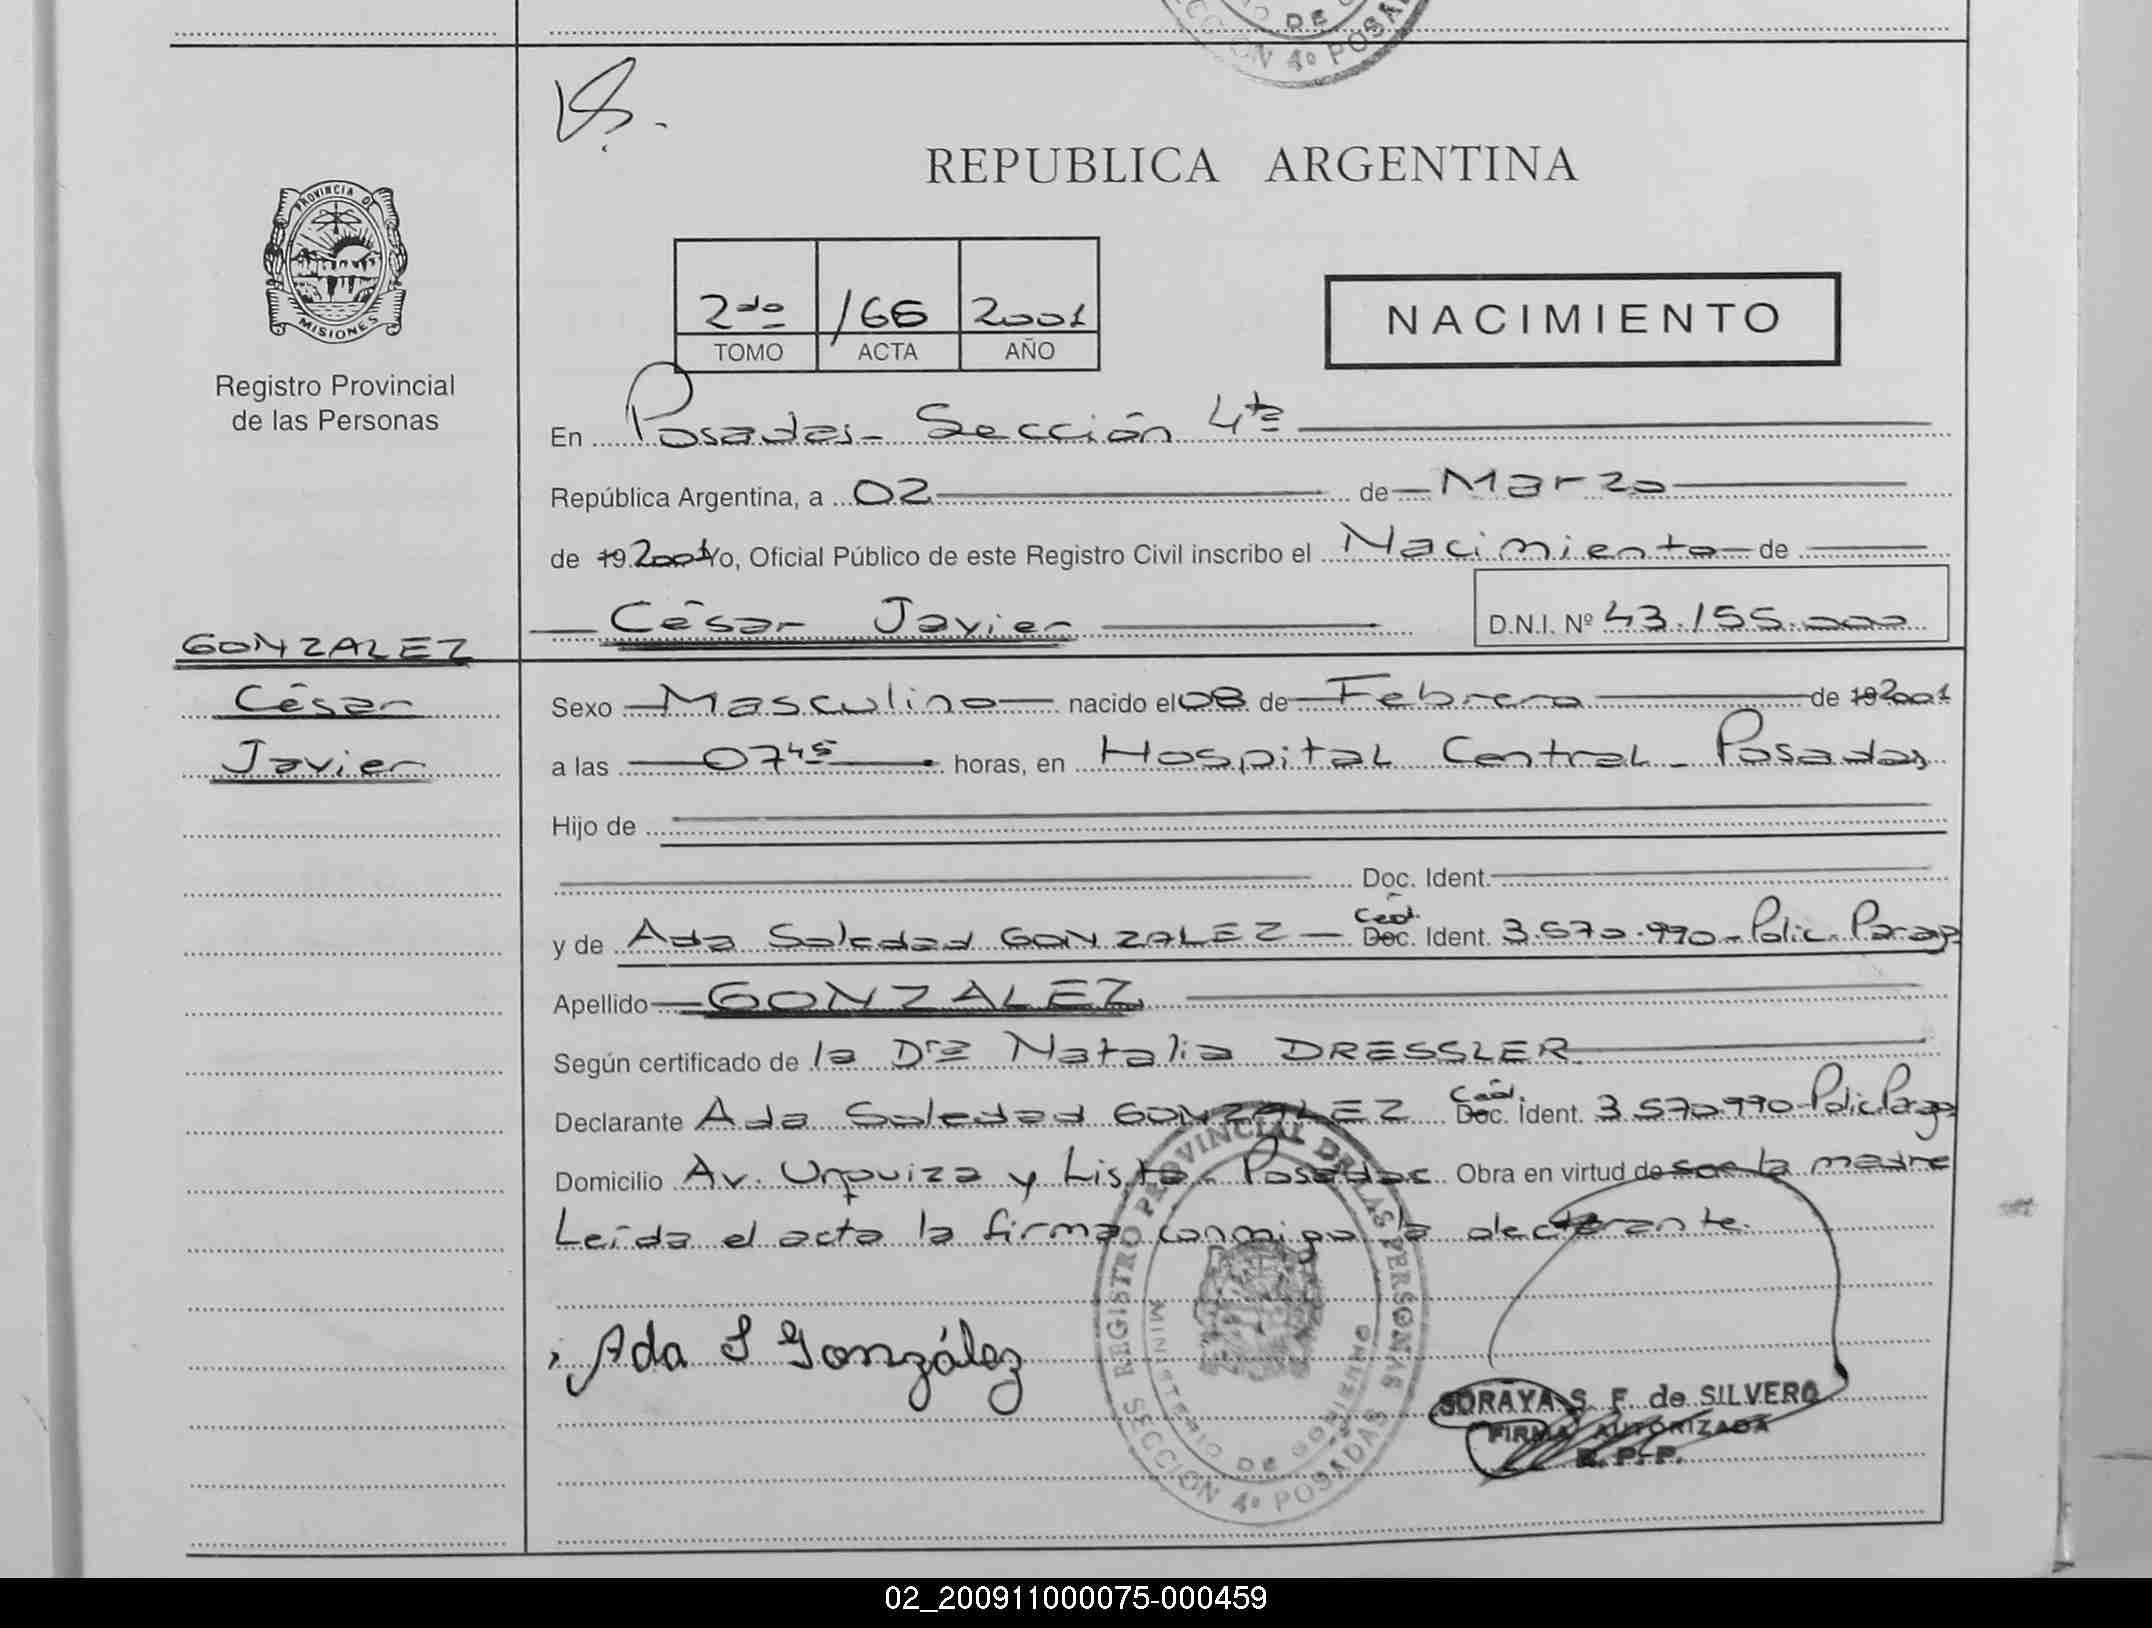 DE
CCION 4º POSAD
REPUBLICA ARGENTINA
PROVINCIA DE
MISIONES
Registro Provincial
de las Personas
2do 166 2001
TOMO ACTA AÑO
NACIMIENTO
En Posadas- Sección 4ta
República Argentina, a 02 de Marzo
de 19 2001 Yo, Oficial Público de este Registro Civil inscribo el Nacimiento de
César Javier D.N.I. Nº 43.155.000
GONZALEZ
César
Javier
Sexo Masculino nacido el 08 de Febrero de 19 2001
a las 07 45 horas, en Hospital Central - Posadas
Hijo de
Doc. Ident.
y de Ada Soledad GONZALEZ Céd. Doc. Ident. 3.570.990- Polic. Parag
Apellido GONZALEZ
Según certificado de la Dra Natalia DRESSLER
Declarante Ada Soledad GONZALEZ Céd. Doc. Ident. 3.570.990- Polic. Parag
Domicilio Av. Urquiza y Lista - Posadas Obra en virtud de ser la madre
Leída el acta la firma conmigo la declarante.
Ada S González
REGISTRO PROVINCIAL DE LAS PERSONAS
MINISTERIO DE GOBIERNO
SECCION 4º POSADAS
SORAYA S. F. de SILVERO
FIRMA AUTORIZADA
R. P. P.
02_200911000075-000459